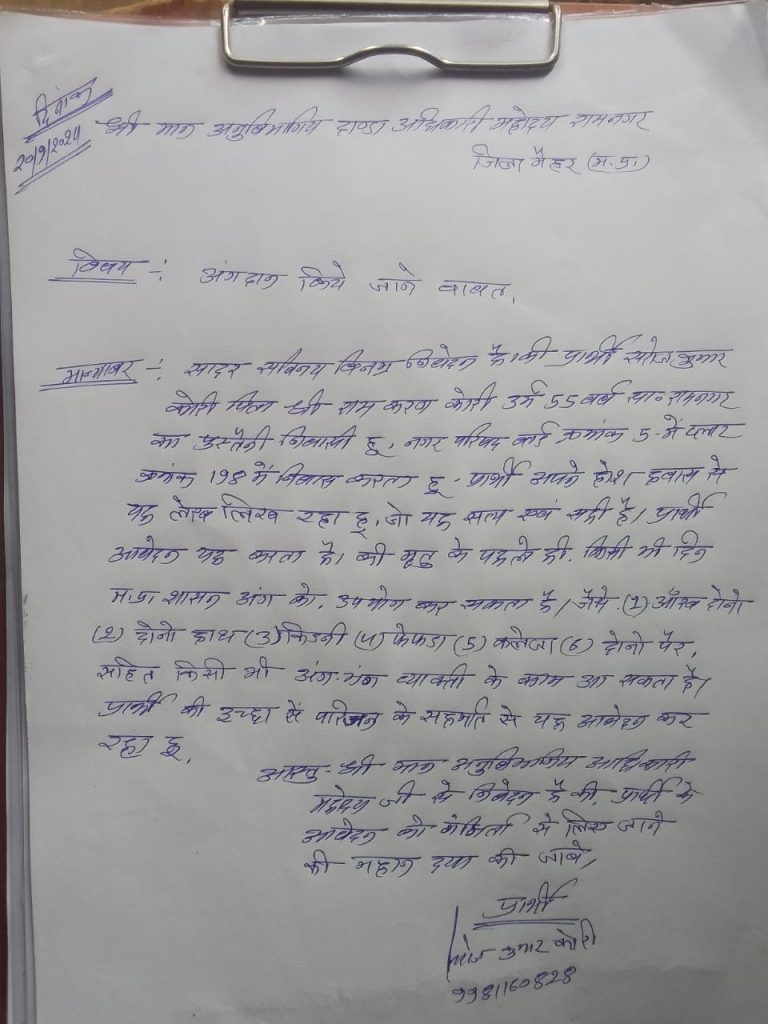 दिनांक
20/9/2024
श्री मान अनुविभागीय दाण्डा अधिकारी महोदय रामनगर
जिला मैहर (म.प्र.)
विषय -: अंगदान किये जाने वावत,
मान्यावर -: सादर सविनय विनम्र निवेदन है। की प्रार्थी कुमार
कोरी पिता श्री राम करण कोरी उर्म 55 वर्ष सा॰ रामनगर
का पुस्तैनी निवासी हू, नगर परिषद वार्ड क्रमांक 5 में प्लाट
क्रमांक 198 में निवास करता हू - प्रार्थी अपने होश हवास से
यह लेख लिख रहा हू, जो यह सत्य एवं सही है। प्रार्थी
आवेदन यह करता है। की मृतु के पहले ही, किसी भी दिन
म.प्र. शासन अंग को, उपयोग कर सकता है। जैसे (1) आँख दोनो
(2) दोनो हाथ (3) किडनी (4) फेफडा (5) कलेजा (6) दोनो पैर,
सहित किसी भी अंग-भंग व्याक्ती के काम आ सकता है।
प्रार्थी की इच्छा से परिजन के सहमति से यह आवेदन कर
रहा हू,
अस्तु - श्री मान अनुविभागीय अधिकारी
महोदय जी से निवेदन है की, प्रार्थी के
आवेदन को से लिए जाने
की महान दया की जावे,
प्रार्थी
कुमार कोरी
9981160828